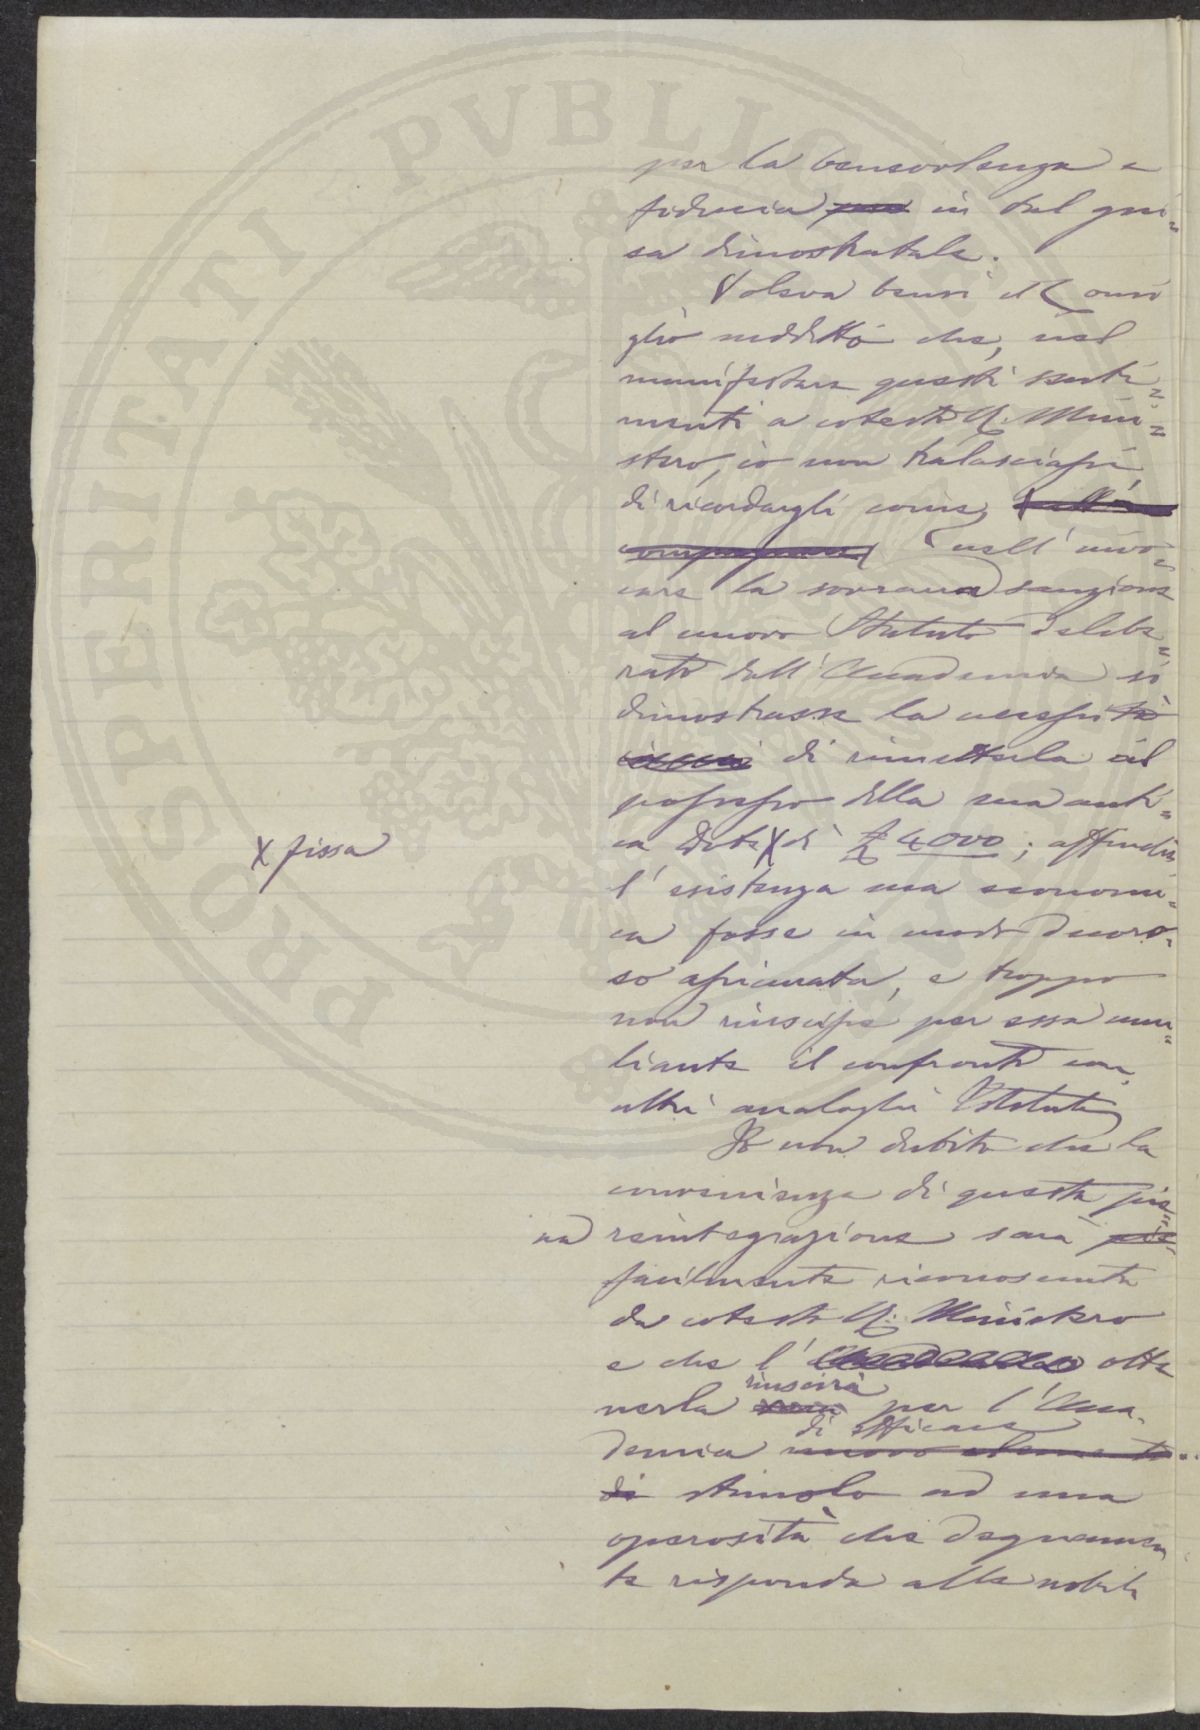 per la benevolenza e
fiducia in tal gui=
sa dimostratale.
Voleva bensì il Consi
glio suddetto che, nel
manifestare questi senti=
menti a cotesto R. Mini=
stero, io non tralasciassi
di ricordargli come,
nell'invo=
care la sovrana sanzione
al nuovo Statuto delibe=
rato dall'Accademia si
dimostrasse la necessità
di rimetterla al
possesso della sua anti=
ca dote X di £ 4000; affinchè
X fissa
l'esistenza sua economi=
ca fosse in modo decoro=
so assicurata, e troppo
non riuscisse per essa umi=
liante il confronto con
altri analoghi Istituti.
Io non dubito che la
convenienza di questa pie=
na reintegrazione sarà
facilmente riconosciuta
da cotesto R. Ministero
e che l' otte
nerla riuscirà per l'Acca=
demia di efficace
nuovo elemento
di stimolo ad una
operosità che degnamen
te risponda alle nobili
PROSPERITATI PVBLICAE